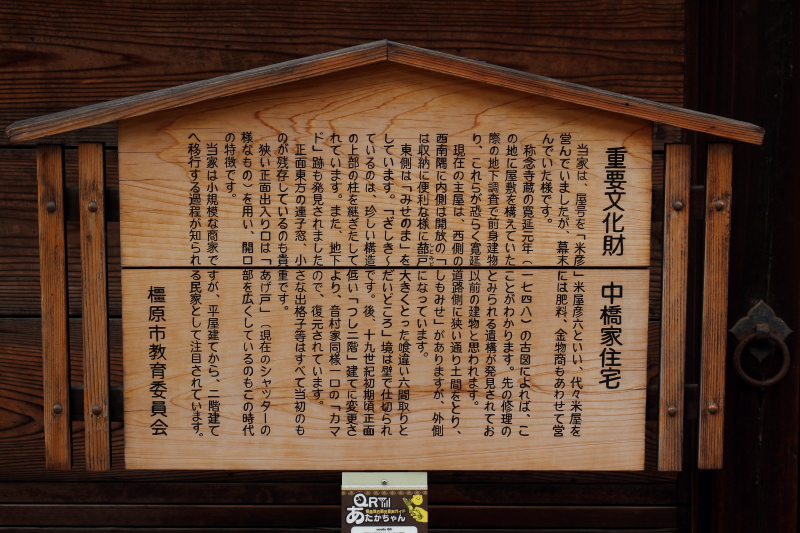 重要文化財 中橋家住宅
当家は、屋号を「米彦」米屋彦六といい、代々米屋を
営んでいましたが、幕末には肥料、金物商もあわせて営
んでいた様です。
称念寺蔵の寛延元年（一七四八）の古図によれば、こ
の地に屋敷を構えていたことがわかります。先の修理の
際の地下調査で前身建物とみられる遺構が発見されてお
り、これらが恐らく寛延以前の建物と思われます。
現在の主屋は、西側の道路側に狭い通り土間をとり、
西南隅に内側は開放の「しもみせ」がありますが、外側
は収納に便利な様に蔀戸になっています。
東側は「みせのま」を大きくとった喰違い六間取りと
しています。「ざしき〜だいどころ」境は壁で仕切られ
ているのは、珍しい構造です。後、十九世紀初期頃正面
の上部の柱を継ぎだして低い「つし二階」建てに変更さ
れています。また、地下より、音村家同様一口の「カマ
ド」跡も発見されましたので、復元されています。
正面東方の連子窓、小さな出格子等はすべて当初のも
のが残存しているのも貴重です。
狭い正面出入り口は「あげ戸」（現在のシャッターの
様なもの）を用い、開口部を広くしているのもこの時代
の特徴です。
当家は小規模な商家ですが、平屋建てから、二階建て
へ移行する過程が知られる民家として注目されています。
橿原市教育委員会
QR
あたかちゃん